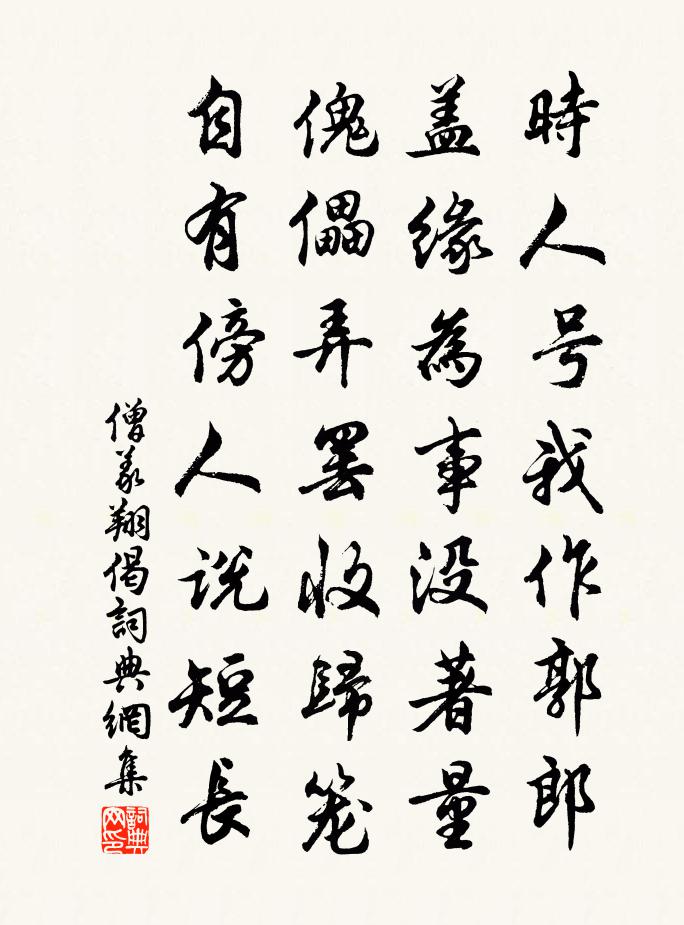 時人号我作郭郎
盖緣為事没著量
傀儡弄罢收歸笼
自有傍人说短長
僧義翔偈詞典網集
詞典网印